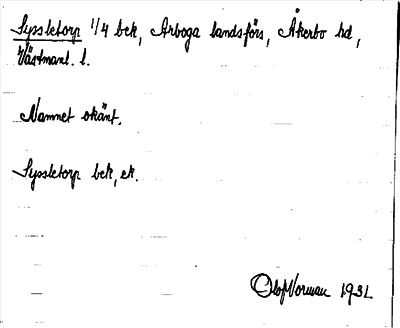 Syssletorp 1/4 bek, Arboga landsförs, Åkerbo hd,
Västmanl. l.
Namnet okänt.
Syssletorp bek, ek.
Olof Norman 1931